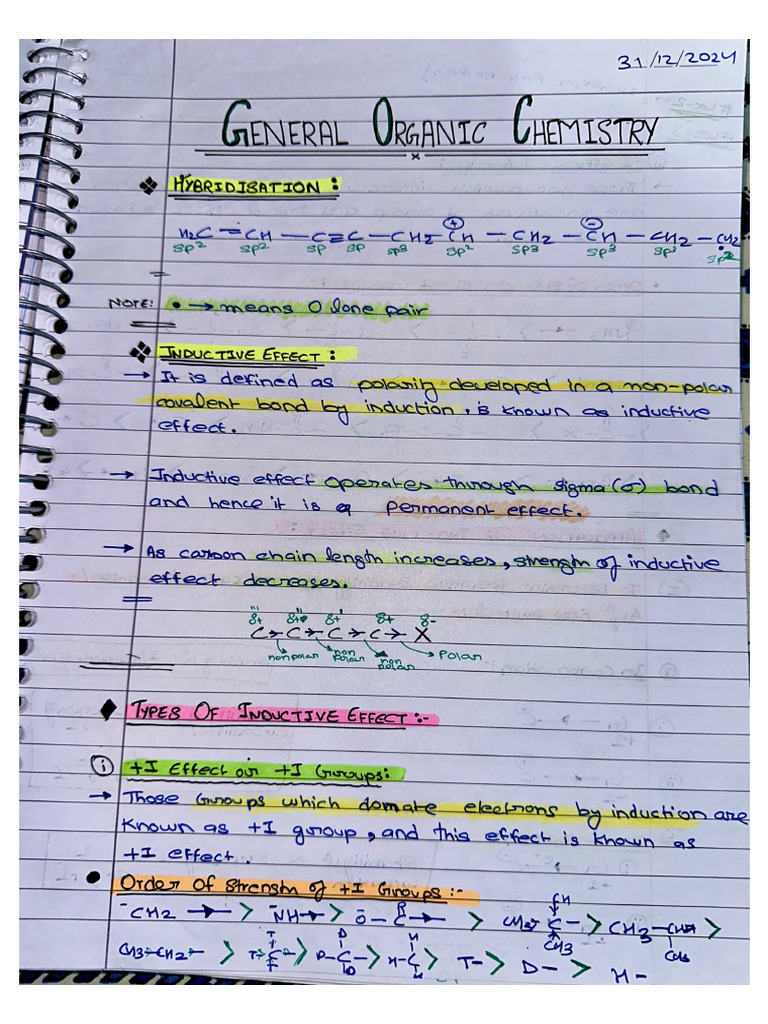 31/12/2024
GENERAL ORGANIC CHEMISTRY
❖ HYBRIDISATION :
H₂C = CH — C ≡ C — CH₂ — CH — CH₂ — CH — CH₂ — CH₂
⊕ ⊖
sp² sp² sp sp sp³ sp² sp³ sp³ sp³ sp²
NOTE: • → means 0 lone pair
❖ INDUCTIVE EFFECT :
→ It is defined as polarity developed in a non-polar
covalent bond by induction, is known as inductive
effect.
→ Inductive effect operates through sigma (σ) bond
and hence it is a permanent effect.
→ As carbon chain length increases, strength of inductive
effect decreases.
δ+''' δ+'' δ+' δ+ δ-
C → C → C → C → X
nonpolar non polar non polar Polar
◆ TYPES OF INDUCTIVE EFFECT :-
(i) +I Effect or +I Groups:
→ Those Groups which domate electrons by induction are
known as +I group, and this effect is known as
+I effect.
● Order of Strength of +I Groups :-
⁻CH₂ → > ⁻NH → > ⁻O — C → > CH₃ — C — > CH₃ — CH — >
CH₃ CH₃
CH₃-CH₂- > T-C- > D-C- > H-C- > T- > D- > H-
T T D D H H